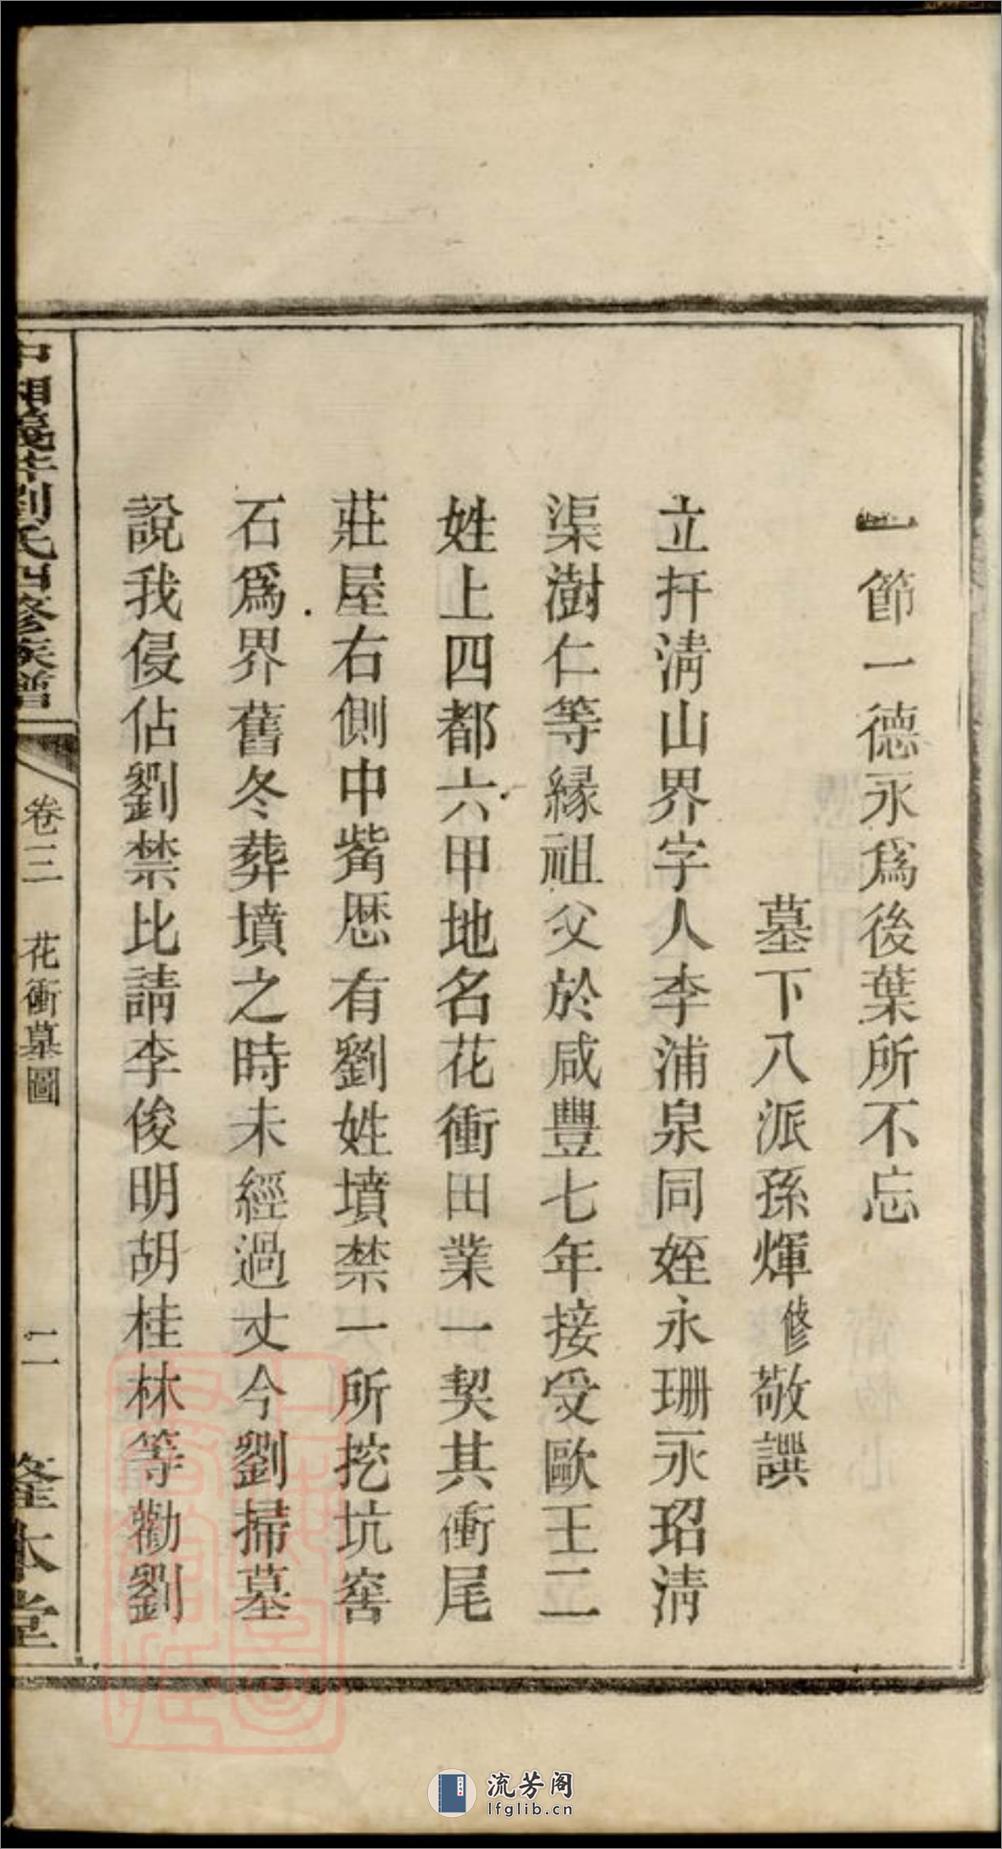 一節一德永爲後葉所不忘
墓下八派孫煇修敬譔
立扦淸山界字人李浦泉同姪永珊永玿淸
渠澍仁等緣祖父於咸豐七年接受歐王二
姓上四都六甲地名花衝田業一契其衝尾
莊屋右側中觜歷有劉姓墳禁一所挖坑窖
石爲界舊冬葬墳之時未經過丈今劉掃墓
說我侵佔劉禁比請李俊明胡桂林等勸劉
中湘義井劉氏四修族譜
卷三 花衝墓圖
二
本堂
流芳阁
lfglib.cn